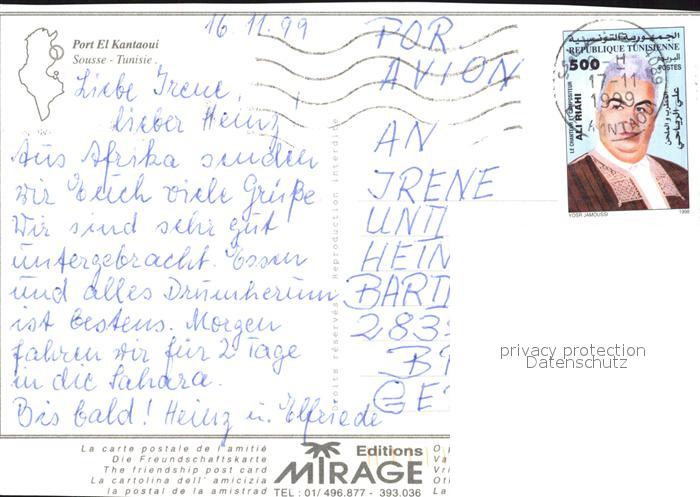 16 11.99
Port El Kantaoui
Sousse - Tunisie
Liebe Irene,
Lieber Heinz,
Aus Afrika senden
wir Euch viele Grüße
Wir sind sehr gut
untergebracht. Essen
und alles Drumherum
ist bestens. Morgen
fahren wir für 2 Tage
in die Sahara.
Bis bald! Heinz u. Elfriede
POR
AVION
AN
IRENE
UND
HEIN
BART
283
B
GE
Droits réservés Reproduction interdite
الجمهورية التونسية
REPUBLIQUE TUNISIENNE
500
البريد
POSTES
LE CHANTEUR ET COMPOSITEUR
ALI RIAHI
المطرب و الملحن
علي الرياحي
YOSR JAMOUSSI
1998
17-11
1999
KANTAOUI
4089
privacy protection
Datenschutz
La carte postale de l'amitié
Die Freundschaftskarte
The friendship post card
La cartolina dell' amicizia
la postal de la amistrad
Editions
MIRAGE
TEL : 01/ 496.877 - 393.036